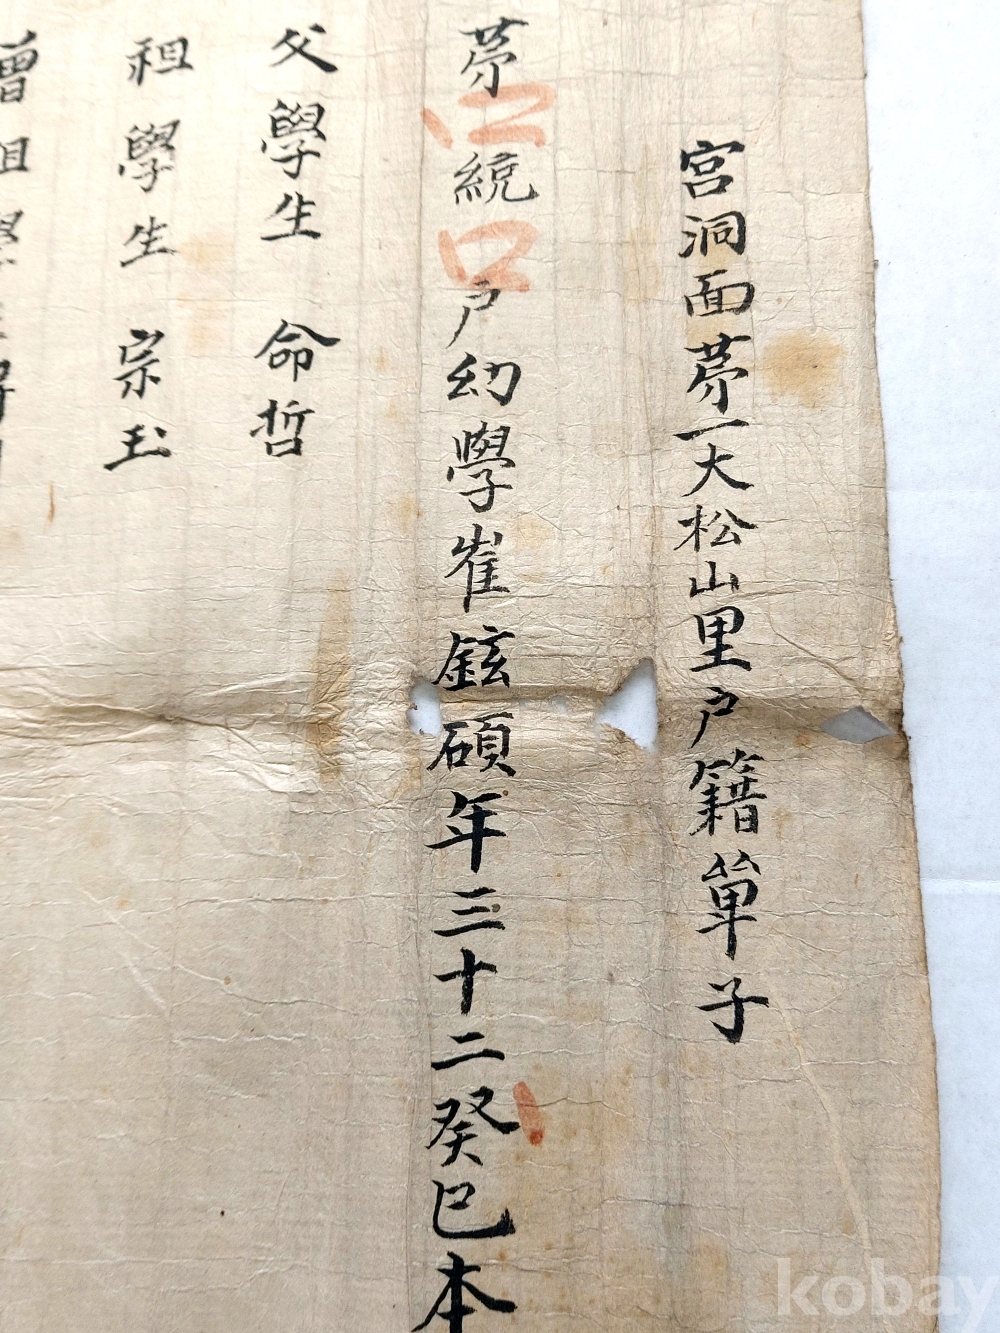 宮洞面苐一大松山里户籍單子
苐 統 户幼學崔鉉碩年三十二癸巳本
父學生 命哲
祖學生 宗玉
曾祖學
kobay